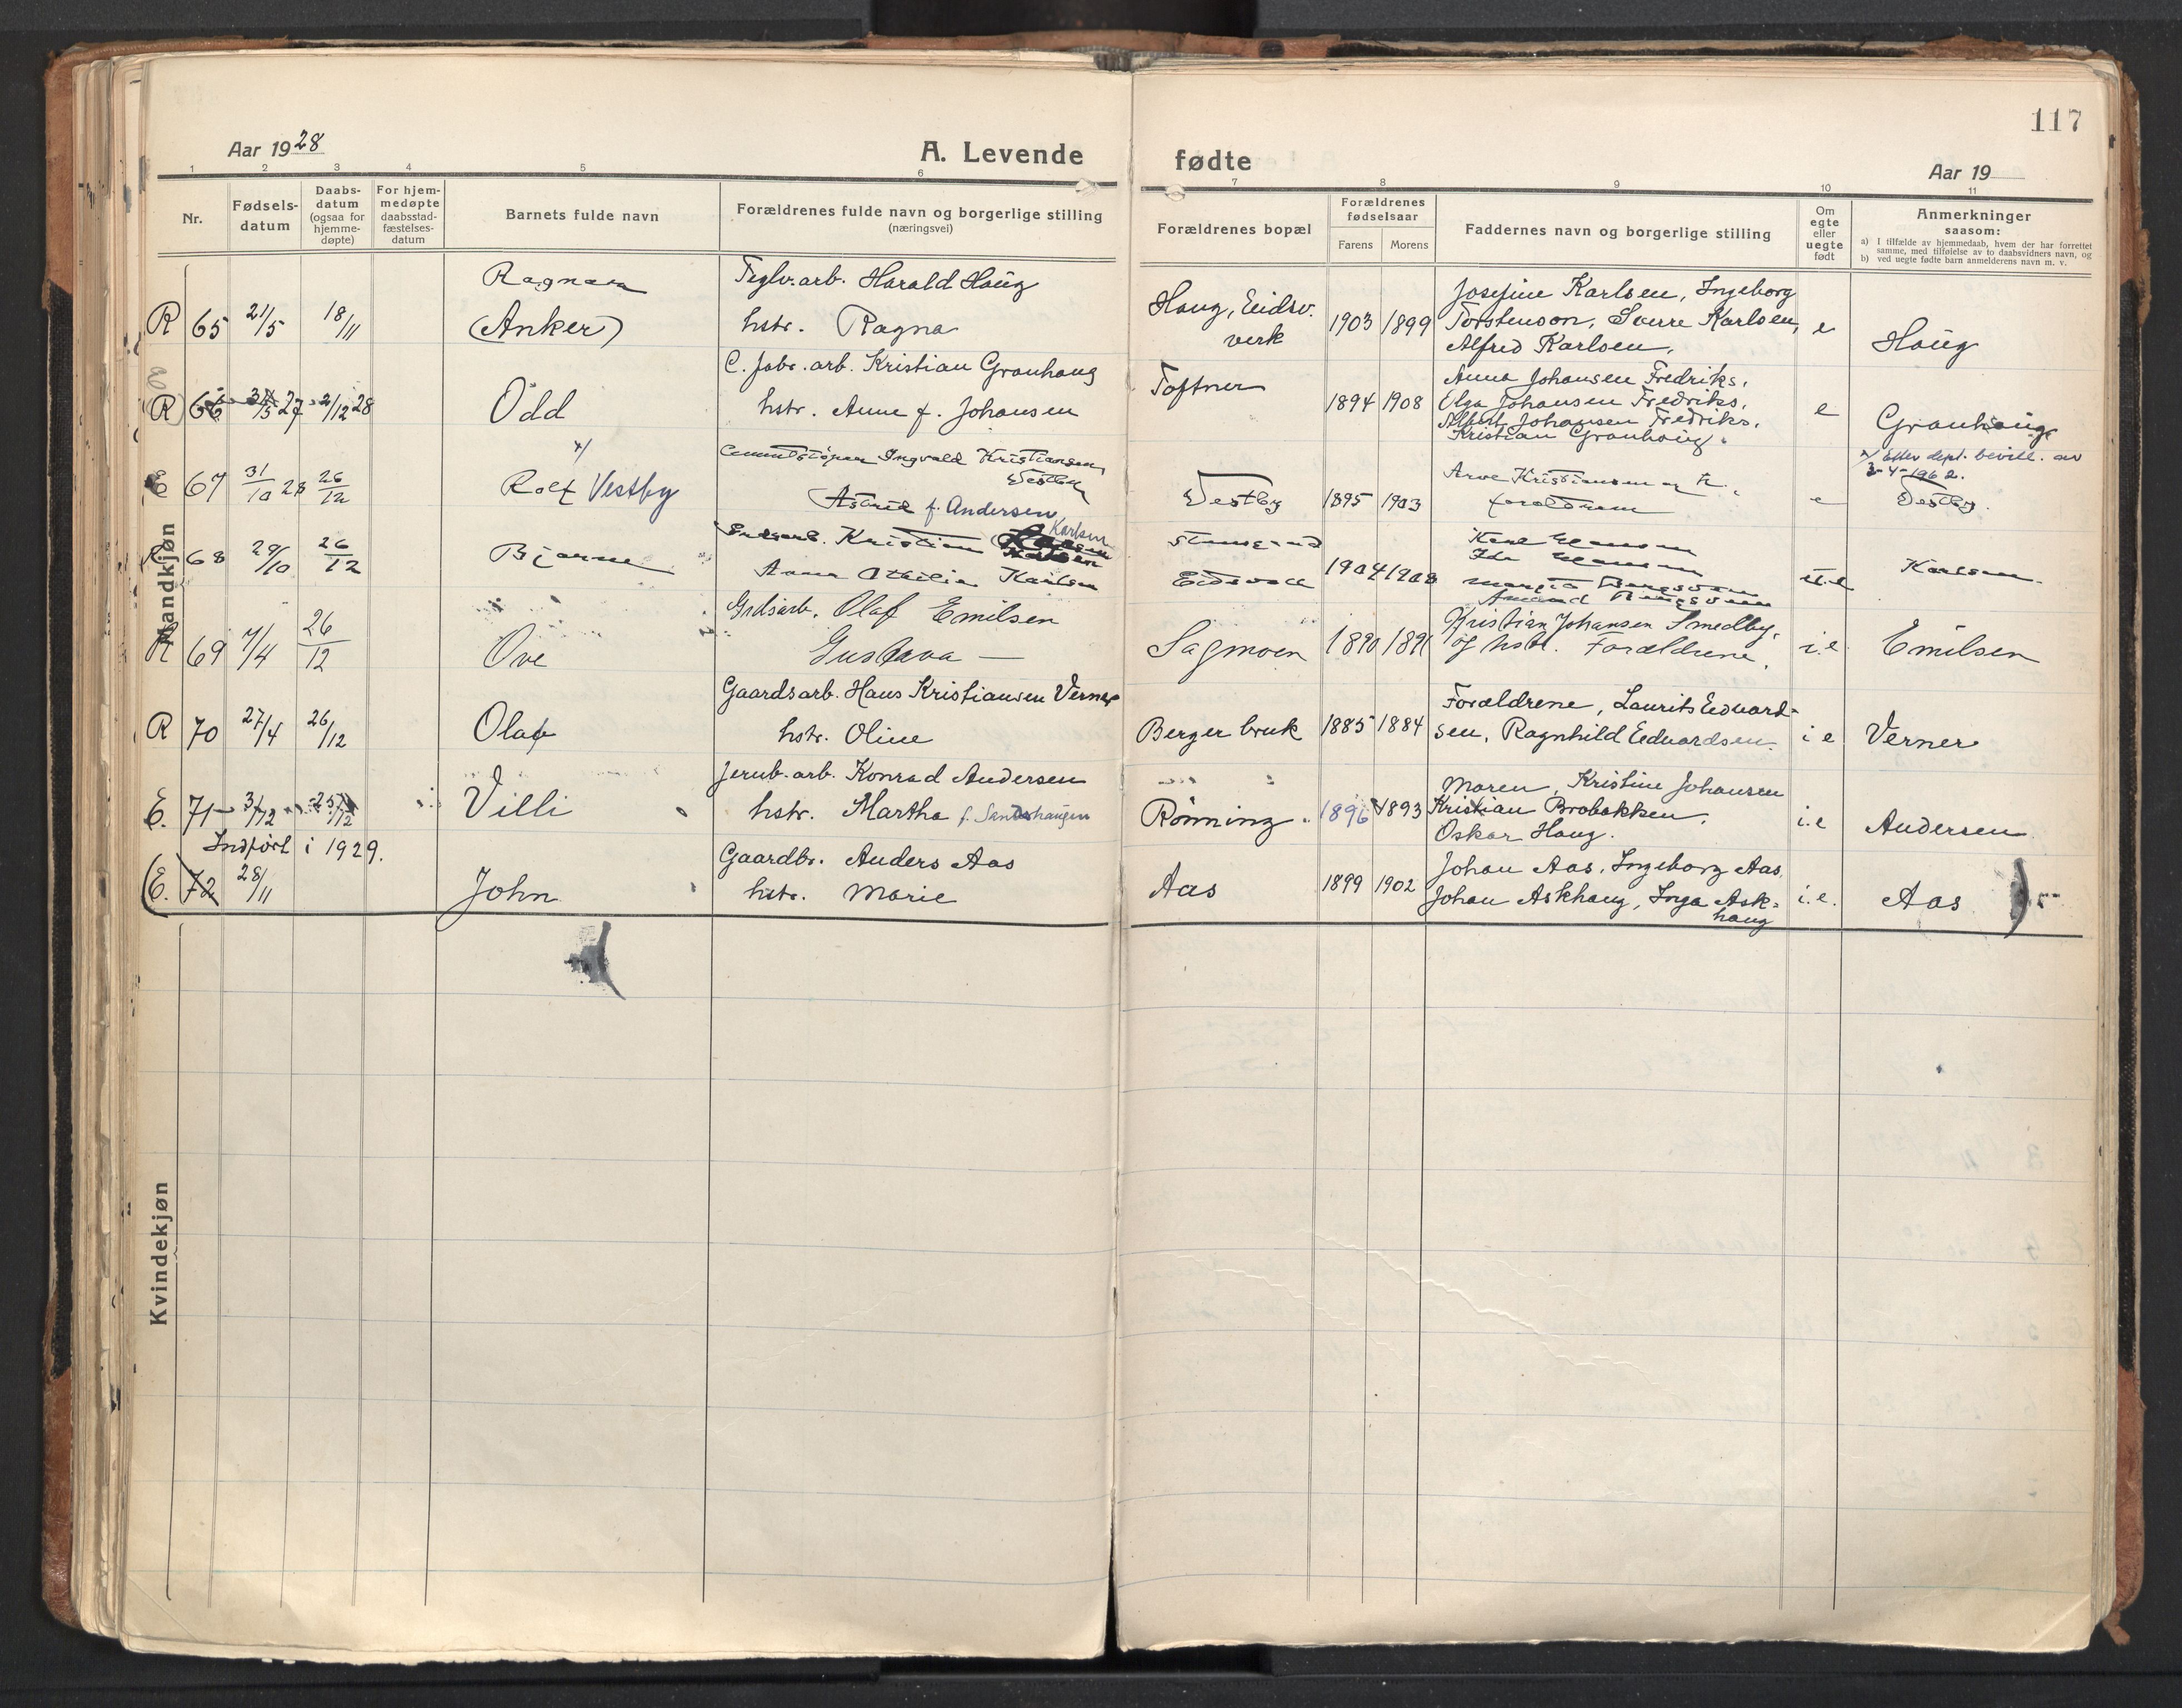 117
Aar 1928
A. Levende fødte
Aar 19
1 2 3 4 5 6 7 8 9 10 11
Nr.
Fødsels-
datum
Daabs-
datum
(ogsaa for
hjemme-
døpte)
For hjem-
medøpte
daabsstad-
fæstelses-
datum
Barnets fulde navn
Forældrenes fulde navn og borgerlige stilling
(næringsvei)
Forældrenes bopæl
Forældrenes
fødselsaar
Farens Morens
Faddernes navn og borgerlige stilling
Om
egte
eller
uegte
født
Anmerkninger
saasom:
a) I tilfælde av hjemmedaab, hvem der har forrettet
samme, med tilføielse av to daabsvidners navn, og
b) ved uegte fødte barn anmelderens navn m. v.
Mandkjøn
R 65 21/5 18/11
Ragnar
(Anker)
Teglv.arb. Harald Haug
hstr. Ragna
Haug, Eidsv.
verk
1903 1899
Josefine Karlsen, Ingeborg
Torstenson, Sverre Karlsen,
Alfred Karlsen.
e
Haug
R 66 27 2/12 28
Odd
C. fabr. arb. Kristian Granhaug
hstr. Anne f. Johansen
Toftner
1894 1908
Anna Johansen Fredriks.
Olga Johansen Fredriks.
Albert Johansen Fredriks.
Kristian Granhaug.
e
Granhaug
E 67 31/10 28 26/12
x/
Rolf Vestby
Ingvald Kristiansen
Vestby
Astrid f. Andersen
Vestby
1895 1903
Arve Kristiansen og
foreldrene
e
x/ Efter dept. bevill. av
3-4-1962.
Vestby.
R 68 29/10 26/12
Bjarne
Kristian Karlsen
Anna Othilie Karlsen
Eidsvoll
1904 1908
Karl Hansen
Ida Hansen
Karlsen.
R 69 7/4 26/12
Ove
Grdsarb. Olaf Emilsen
Gustava —
Sagmoen
1890 1891
Kristian Johansen Smedby.
og hstr. Forældrene.
i.e
Emilsen
R 70 27/4 26/12
Olaf
Gaardsarb. Hans Kristiansen Verner
hstr. Oline
Berger bruk
1885 1884
Forældrene, Laurits Edvard-
sen, Ragnhild Edvardsen.
i e
Verner
E. 71 3/12 25/12
Villi
Jernb. arb. Konrad Andersen
hstr. Martha f. Sandshaugen
Rønning
1896 1893
Maren, Kristine Johansen
Kristian Brobakken.
Oskar Haug.
i.e
Andersen
Indført i 1929.
(E. 72 28/11
John
Gaardbr. Anders Aas
hstr. Marie
Aas
1899 1902
Johan Aas. Ingeborg Aas
Johan Askhaug, Inga Ask-
haug
i.e.
Aas
Kvindekjøn